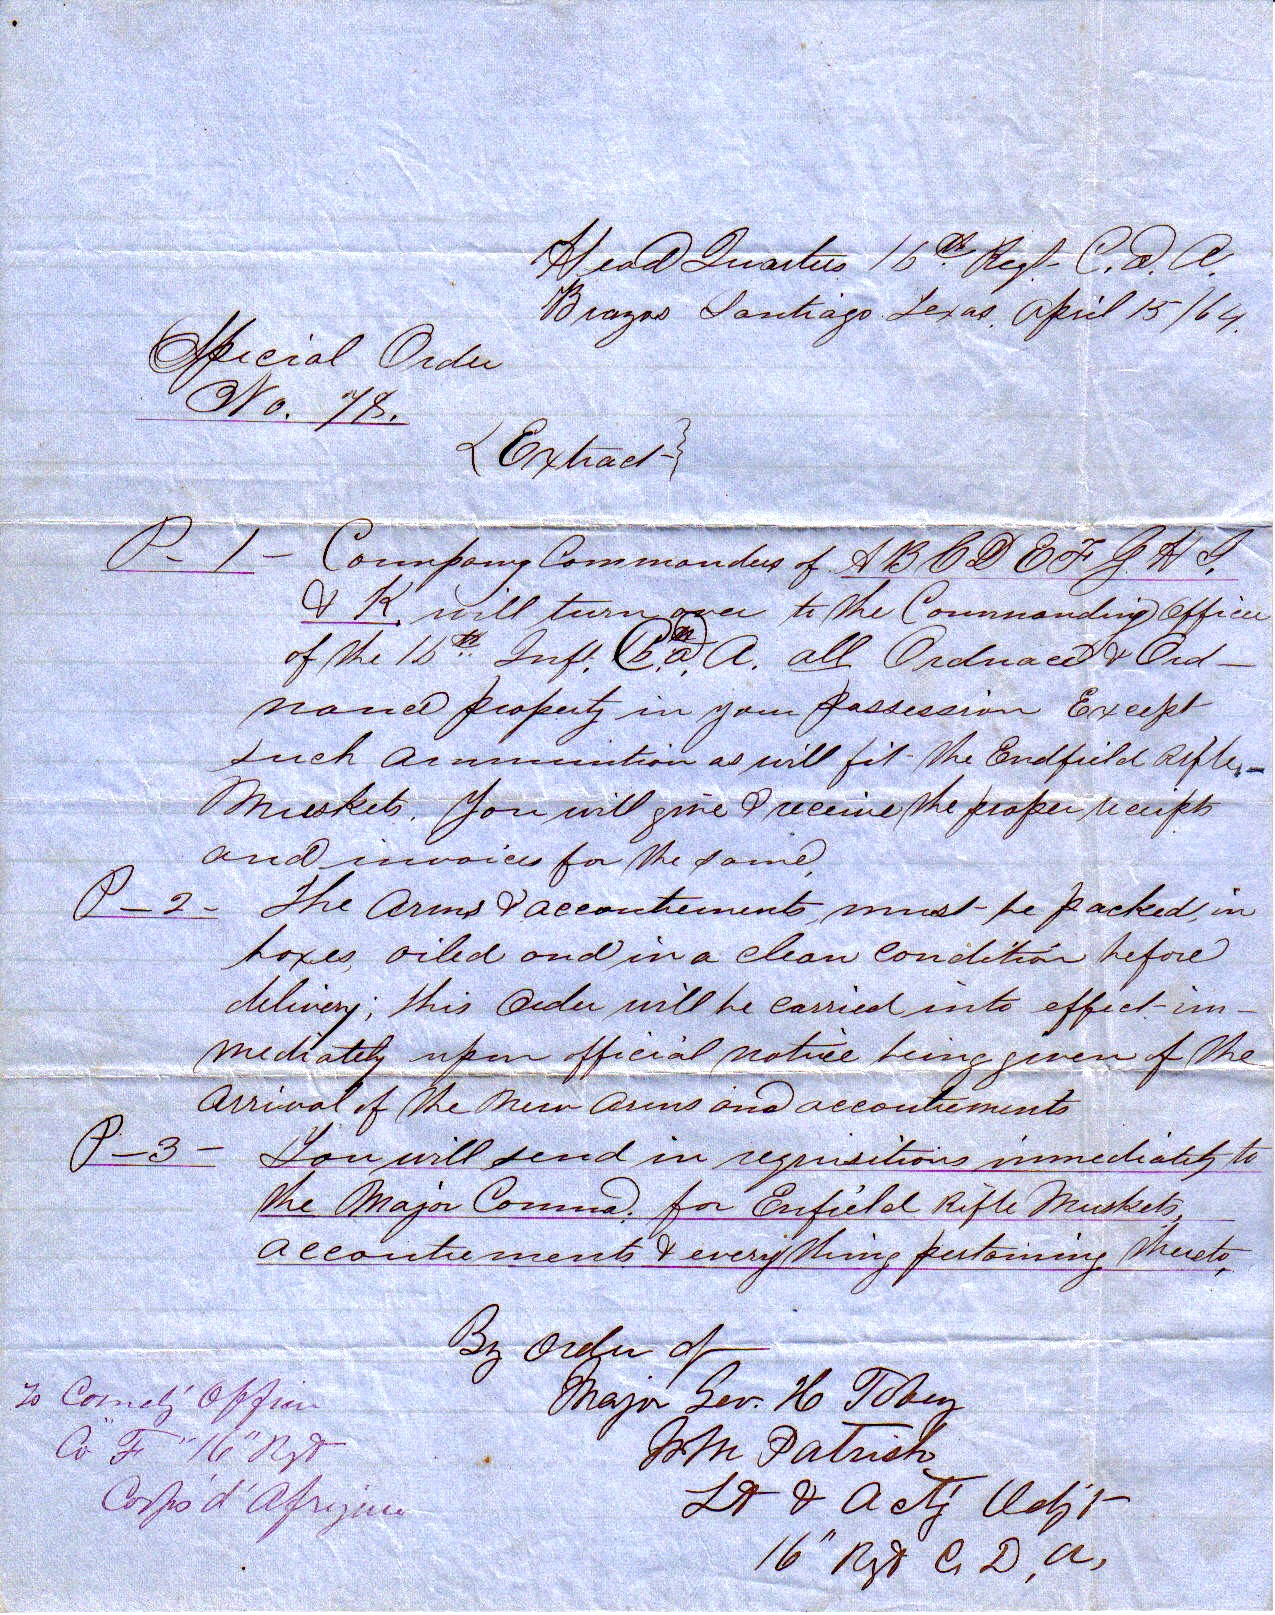 Head Quarters 16th Regt. C. d. A.
Brazos Santiago Texas. April 15/64.
Special Order
No. 78.
{Extract}
P-1- Company Commanders of A B C D E F G. H I.
& K. will turn over to the Commanding Officer
of the 16th Inft. C. d. A. all Ordnace & Ord-
nance property in your possession Except
such ammunition as will fit the Endfield Rifle-
Muskets. You will give & receive the proper receipts
and invoices for the same,
P-2- The Arms & accoutrements, must be packed, in
boxes, oiled and in a clean condition before
delivery; this Order will be carried into effect im-
mediately upon official notice being given of the
arrival of the New Arms and accoutrements
P-3- You will send in requisitions immediately to
the Major Commd. for Enfield Rifle Muskets,
accoutrements & everything pertaining thereto,
By order of
Major Geo. H Tobey
Wm Patrick
Lt & Actg Adjt
16" Rgt C. D. A.
To Comdg Officer
Co "F" 16" Rgt
Corps d' Afrique